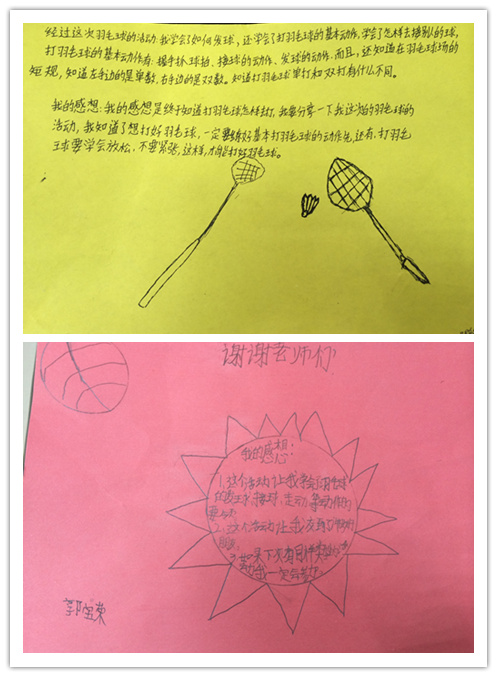 经过这次羽毛球的活动,我学会了如何发球,还学会了打羽毛球的基本动作,学会了怎样去接别人的球,
打羽毛球的基本动作有:握手球拍、接球的动作、发球的动作。而且,还知道在羽毛球场的
短规,知道左手边的是单数,右手边的是双数。知道打羽毛球单打和双打有什么不同。
我的感想:我的感想是终于知道打羽毛球怎样去打,我要分享一下我这次的羽毛球的
活动,我知道了想打好羽毛球,一定要练好基本打羽毛球的动作先,还有,打羽毛
球要学会放松,不要紧张,这样,才能打好羽毛球。
谢谢老师们
我的感想:
1.这个活动让我学会了羽毛球
的发球、接球、走动等动作的
2.这个活动让我
3.如果下次有同样类
我一定会参加
郭宝荣